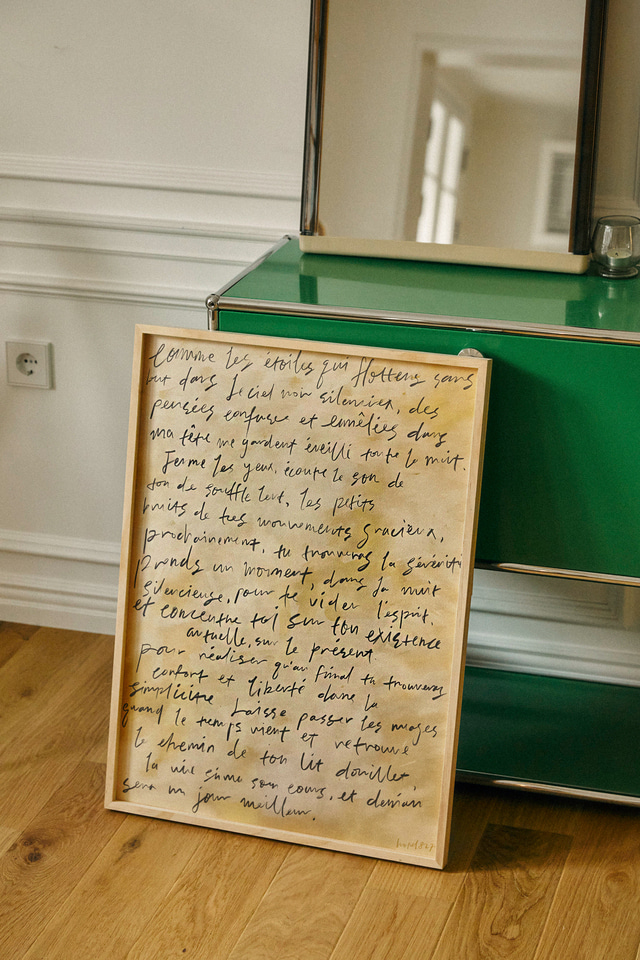 Comme les étoiles qui flottent sans
but dans le ciel non silencieux, des
pensées confuses et emmêlées dans
ma tête me gardent éveillé toute la nuit.
Ferme les yeux, écoute le son de
ton de souffle lent, les petits
bruits de tes mouvements gracieux,
prochainement, tu trouveras la sérénité
prends un moment, dans la nuit
silencieuse, pour te vider l'esprit,
et concentre toi sur ton existence
actuelle, sur le présent
pour réaliser qu'au final tu trouveras
confort et liberté dans la
simplicité Laisse passer les nuages
quand le temps vient et retrouve
le chemin de ton lit douillet,
la vie suive son cours, et demain
sera un jour meilleur.